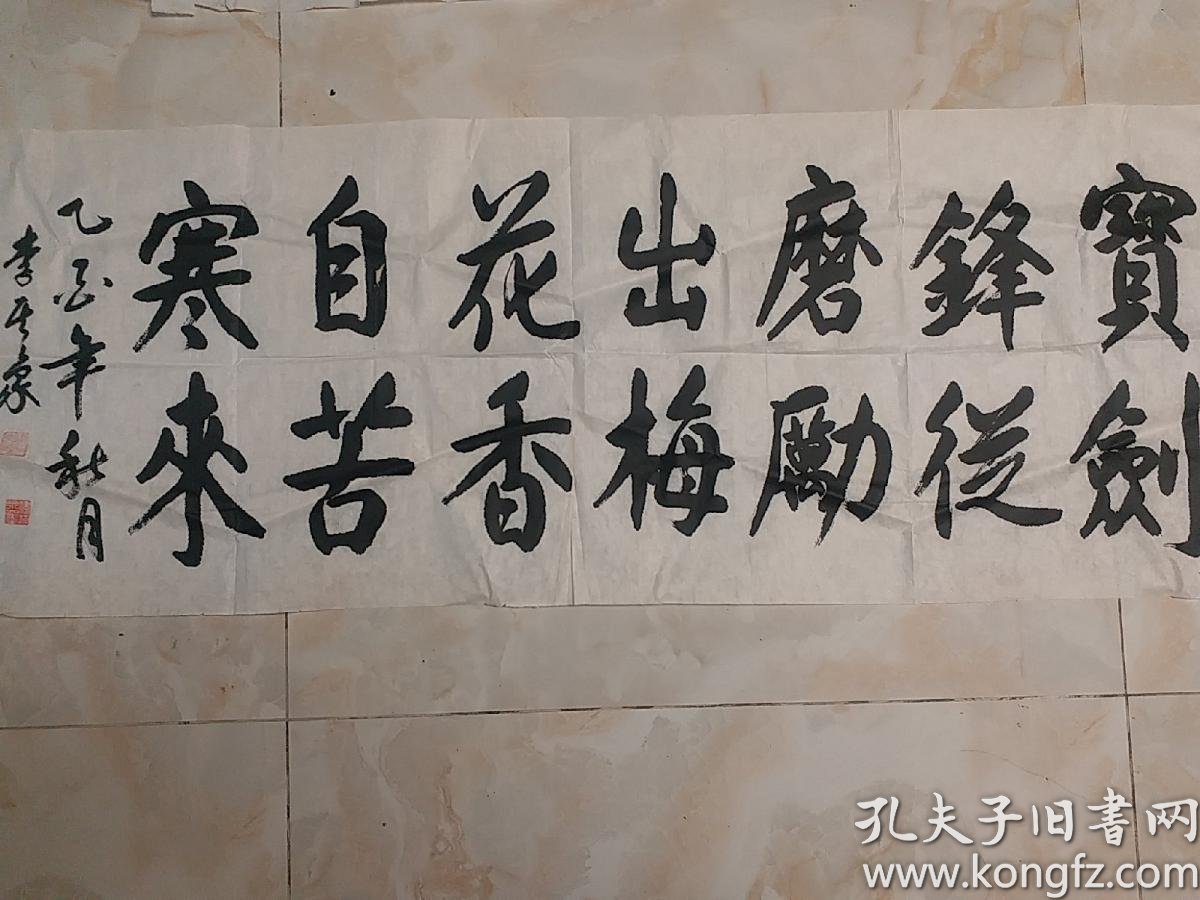 寶劍
鋒從
磨勵
出梅
花香
自苦
寒來
乙酉年秋月
孔夫子旧書网
www.kongfz.com